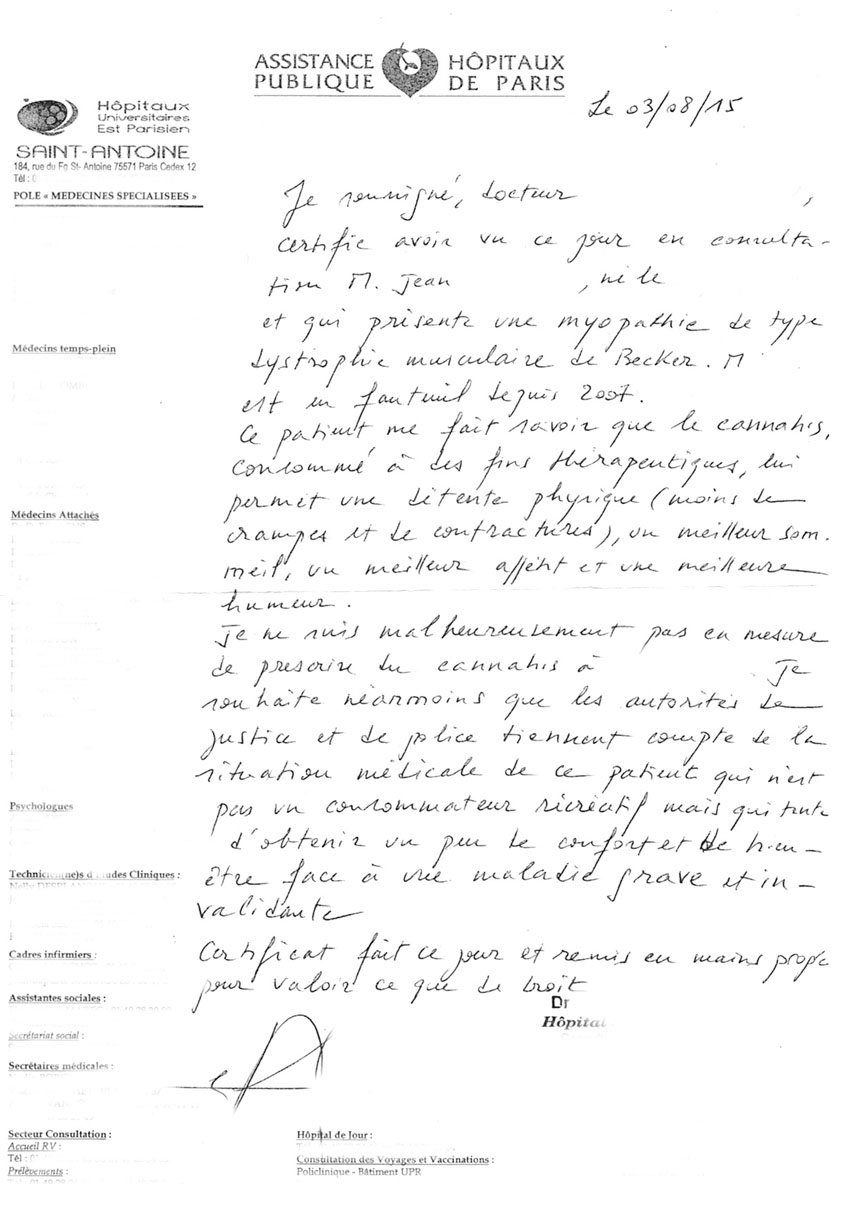 ASSISTANCE PUBLIQUE HÔPITAUX DE PARIS
Le 03/08/15
Hôpitaux
Universitaires
Est Parisien
SAINT-ANTOINE
184, rue du Fg St- Antoine 75571 Paris Cedex 12
Tél :
POLE « MEDECINES SPECIALISEES »
Je soussigné, Docteur ,
certifie avoir vu ce jour en consulta-
tion M. Jean , né le
et qui présente une myopathie de type
dystrophie musculaire de Becker. M
est en fauteuil depuis 2007.
Ce patient me fait savoir que le cannabis,
consommé à des fins thérapeutiques, lui
permet une détente physique (moins de
crampes et de contractures), un meilleur som-
meil, un meilleur appétit et une meilleure
humeur.
Je ne suis malheureusement pas en mesure
de prescrire du cannabis à Je
souhaite néanmoins que les autorités de
justice et de police tiennent compte de la
situation médicale de ce patient qui n'est
pas un consommateur récréatif mais qui tente
d'obtenir un peu de confort et de bien-
être face à une maladie grave et in-
validante
Certificat fait ce jour et remis en mains propre
pour valoir ce que de droit
Dr
Hôpital
Médecins temps-plein
Médecins Attachés
Psychologues
Cadres infirmiers :
Assistantes sociales :
Secrétariat social :
Secrétaires médicales :
Secteur Consultation :
Accueil RV :
Tél :
Prélèvements :
Hôpital de Jour :
Consultation des Voyages et Vaccinations :
Policlinique - Bâtiment UPR